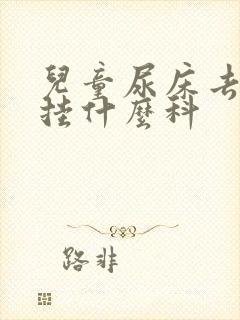 兒童尿床去
挂什麼科
路非